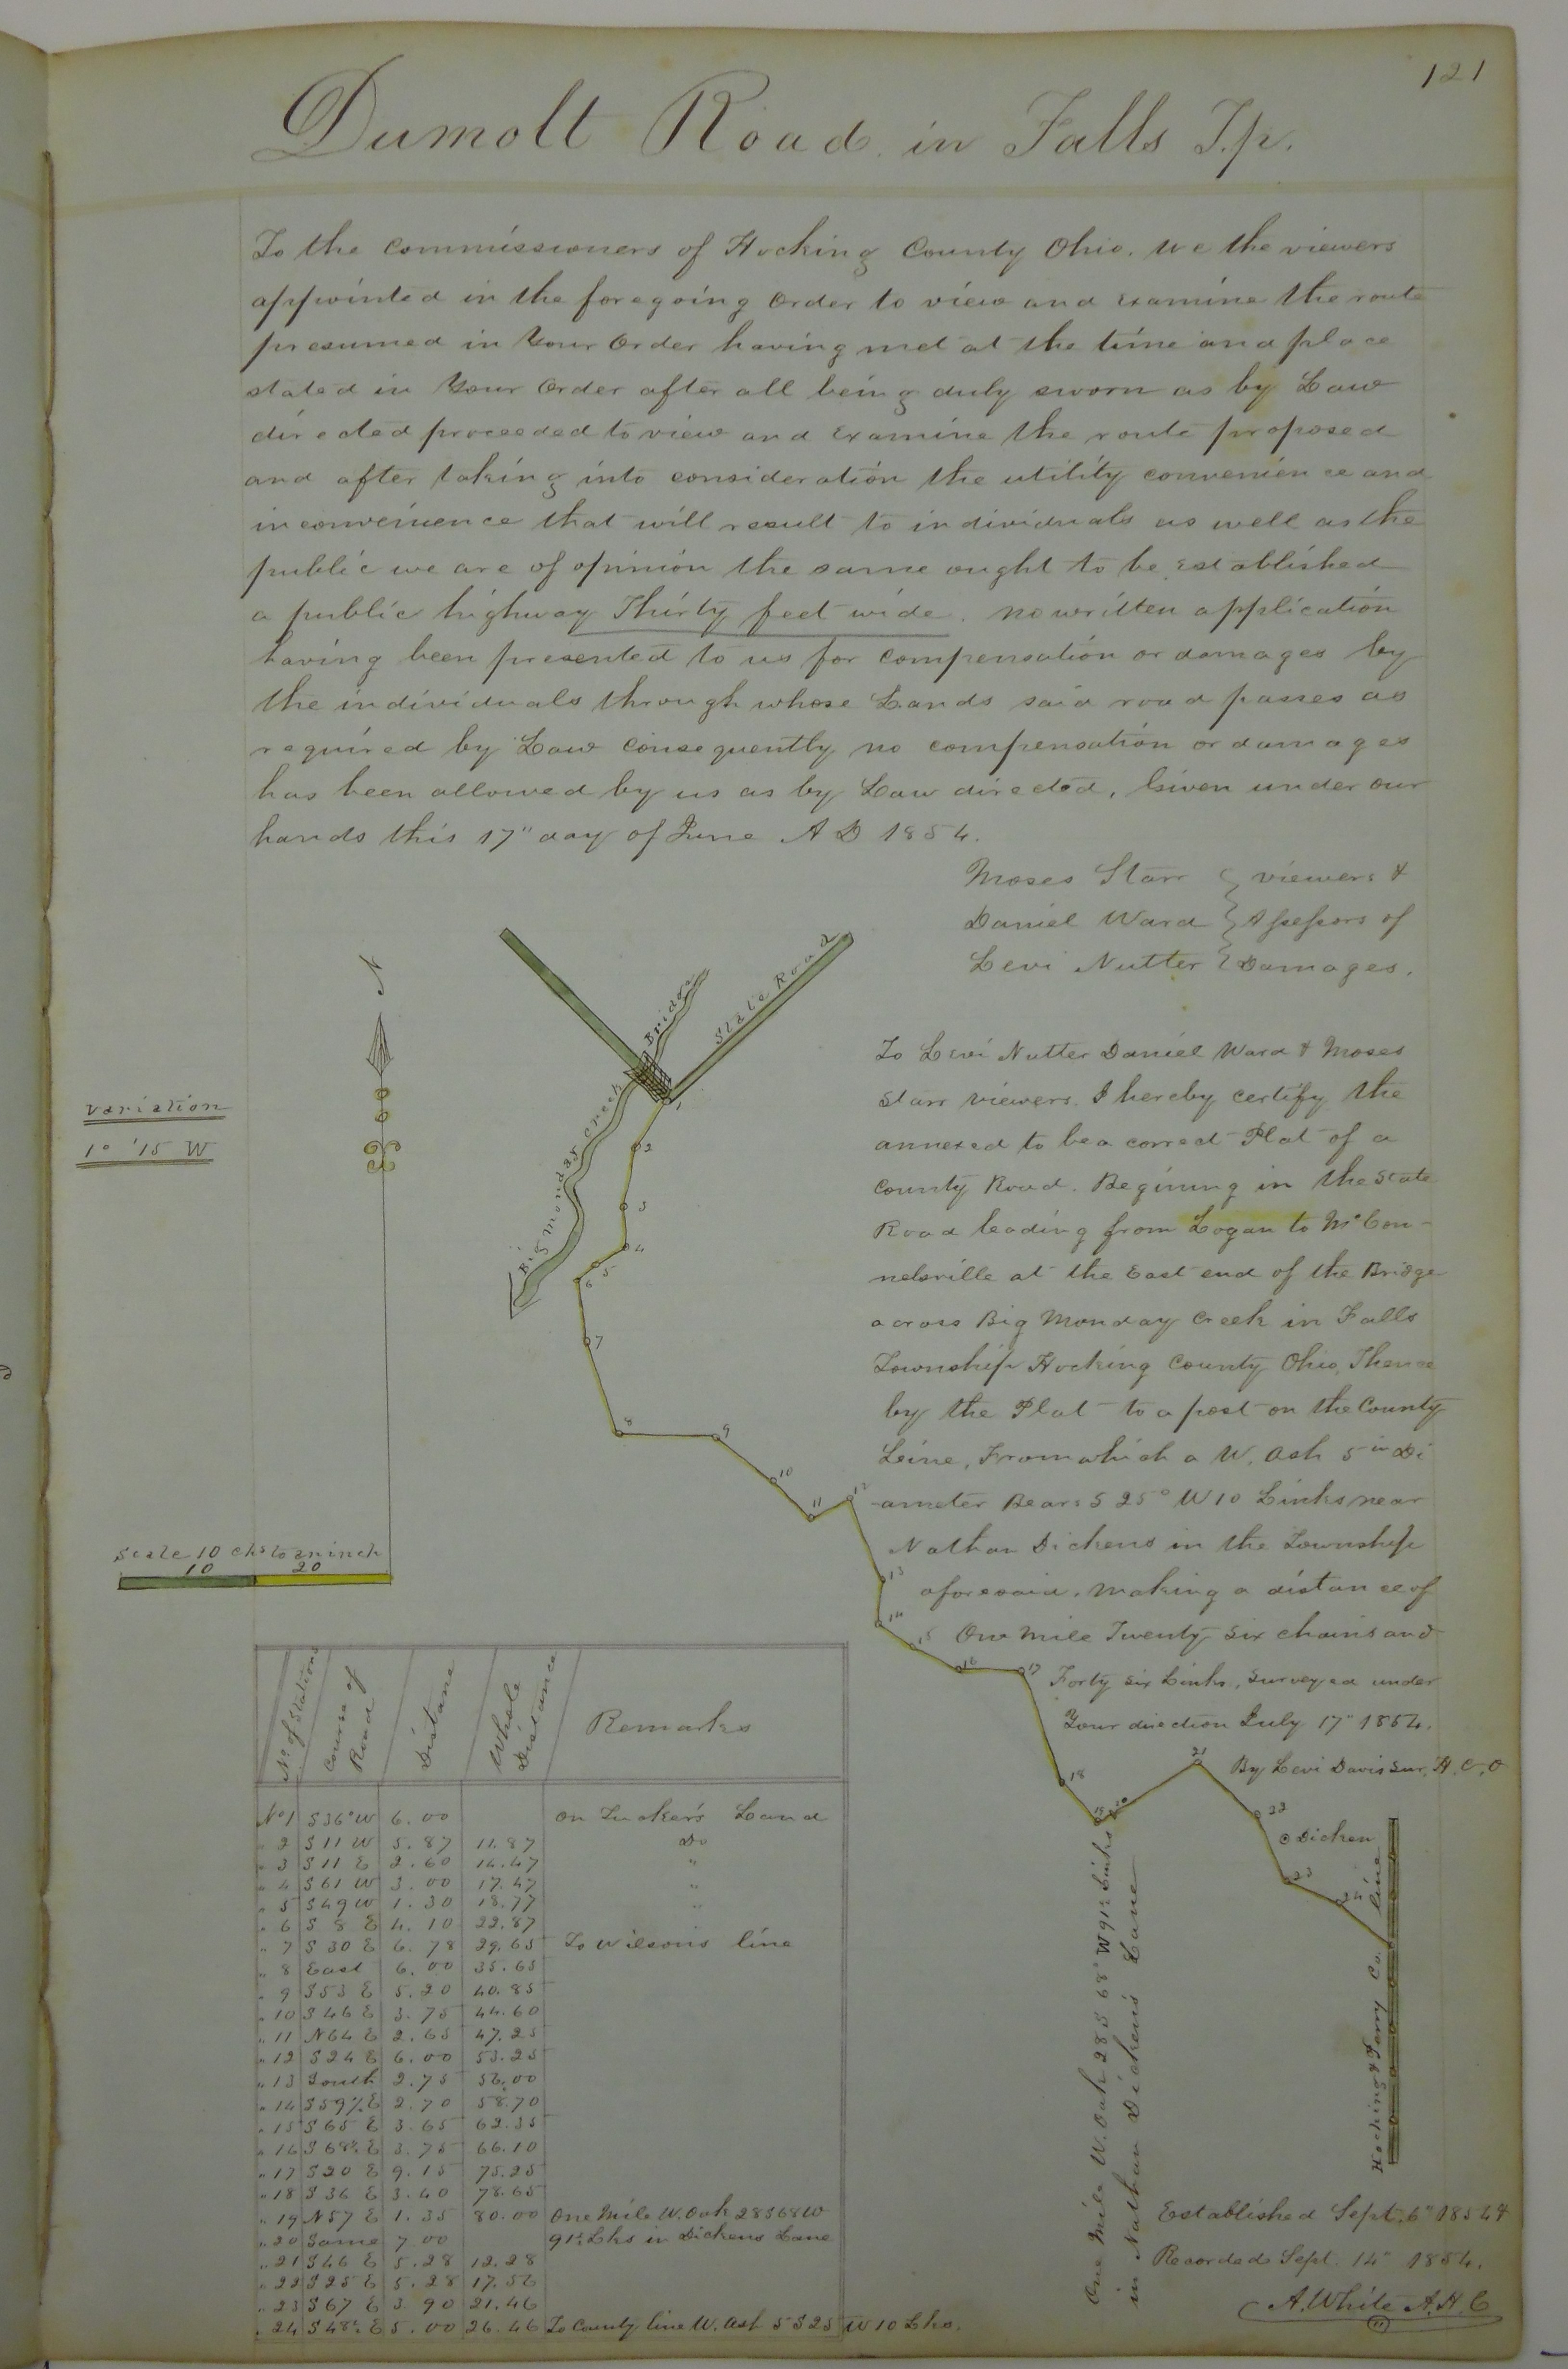 121
Dumolt Road in Falls T.p.
To the Commissioners of Hocking County Ohio. We the viewers
appointed in the foregoing Order to view and Examine the route
presumed in Your Order having met at the time and place
stated in Your Order after all being duly sworn as by Law
directed proceeded to view and Examine the route proposed
and after taking into consideration the utility convenience and
inconvenience that will result to individuals as well as the
public we are of opinion the same ought to be Established
a public highway Thirty feet wide. no written application
having been presented to us for compensation or damages by
the individuals through whose Lands said road passes as
required by Law Consequently no compensation or damages
has been allowed by us as by Law directed, Given under our
hands this 17" day of June A D 1854.
Moses Starr } viewers &
Daniel Ward } Assessors of
Levi Nutter } Damages.
N
variation
1° '15 W
State Road
Bridge
Big Monday Creek
To Levi Nutter Daniel Ward & Moses
Starr viewers. I hereby certify the
annexed to be a correct Plat of a
County Road. Begining in the State
Road leading from Logan to McCon-
nelsville at the East end of the Bridge
across Big Monday Creek in Falls
Township Hocking County Ohio, Thence
by the Plat to a post on the County
Leine, From which a W. Ash 5 in Di
-ameter Bears S 25° W 10 Links near
Nathan Dickens in the Township
aforesaid. making a distance of
One mile Twenty six chains and
Forty six Links, surveyed under
Your direction July 17" 1854.
By Levi Davis Sur. H. C. O
1
2
3
4
5
6
7
8
9
10
11
12
13
14
15
16
17
18
19
20
21
22
23
24
Scale 10 chs to an inch
10 20
C Dicken
Hocking & Perry Co. line
One Mile W. Oak 28 S 68° W 91½ Links
in Nathan Dickens Lane
No of Stations Course of Road Distane Whole Distance Remarks
No 1 S 36° W 6.00 On Tucker's Land
" 2 S 11 W 5.87 11.87 Do
" 3 S 11 E 2.60 14.47 "
" 4 S 61 W 3.00 17.47 "
" 5 S 49 W 1.30 18.77 "
" 6 S 8 E 4.10 22.87
" 7 S 30 E 6.78 29.65 To Wilson's line
" 8 East 6.00 35.65
" 9 S 53 E 5.20 40.85
" 10 S 46 E 3.75 44.60
" 11 N 64 E 2.65 47.25
" 12 S 24 E 6.00 53.25
" 13 South 2.75 56.00
" 14 S 59½ E 2.70 58.70
" 15 S 65 E 3.65 62.35
" 16 S 68½ E 3.75 66.10
" 17 S 20 E 9.15 75.25
" 18 S 36 E 3.40 78.65
" 19 N 57 E 1.35 80.00 One Mile W. Oak 28 S 68 W
" 20 Same 7.00 91½ Lks in Dickens Lane
" 21 S 46 E 5.28 12.28
" 22 S 25 E 5.28 17.56
" 23 S 67 E 3.90 21.46
" 24 S 48½ E 5.00 26.46 To County line W. Ash 5 S 25 W 10 Lks.
Established Sept. 6" 1854
Recorded Sept. 14" 1854.
A. White A. H. C